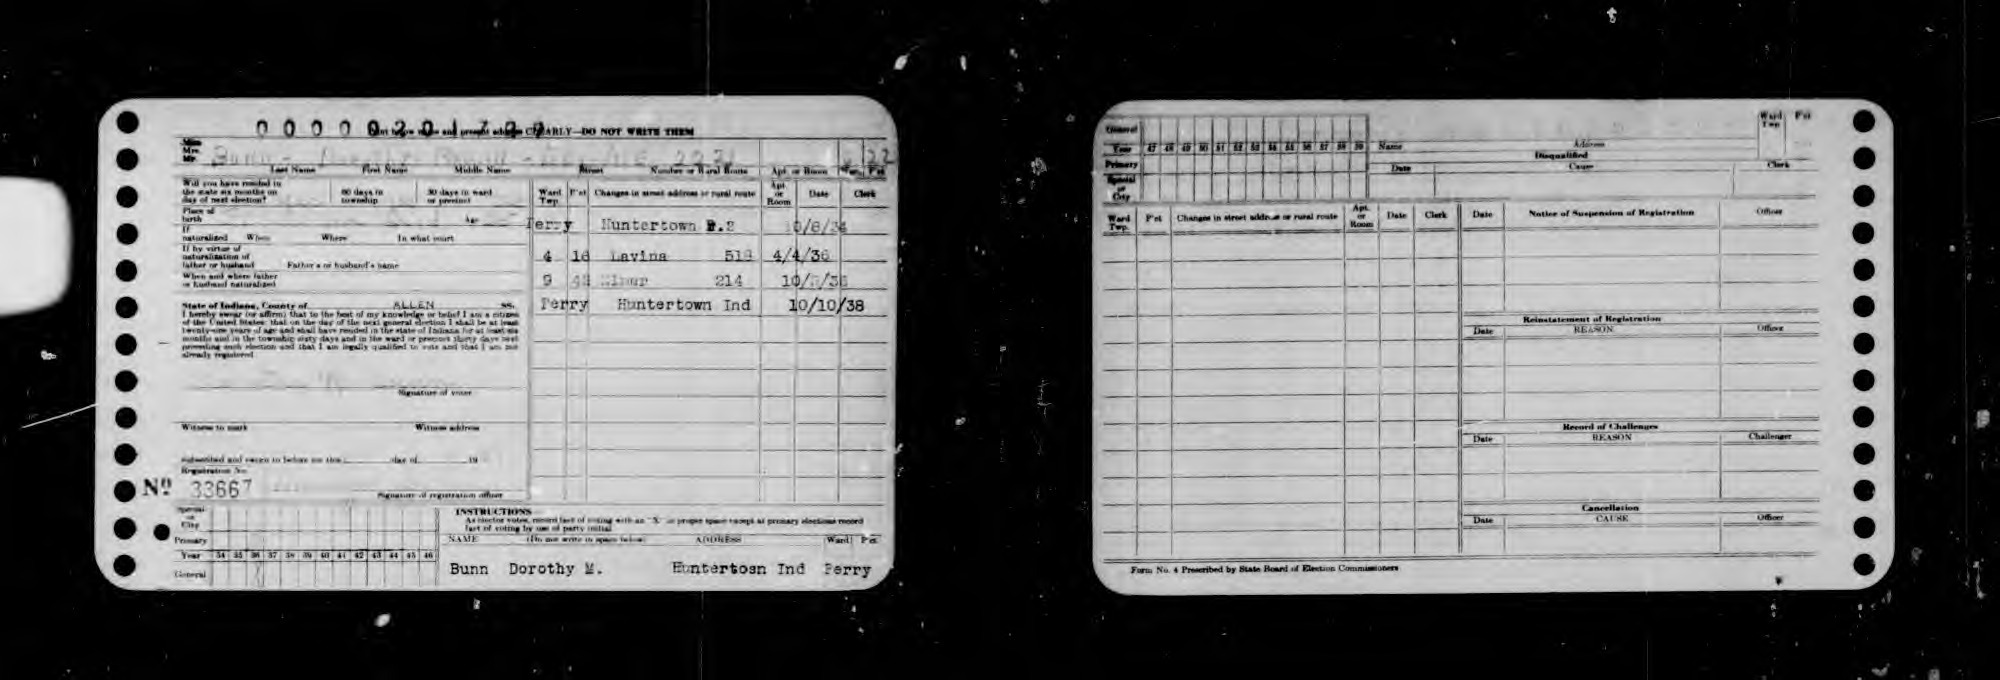 Print below name and present address CLEARLY—DO NOT WRITE THEM
Miss
Mrs.
Mr. Bunn - 2221 22
Last Name First Name Middle Name Street Number or Rural Route Apt. or Room Ward P'ct
Will you have resided in
the state six months on
day of next election?
60 days in
township
30 days in ward
or precinct
Place of
birth Age
If
naturalized When Where In what court
If by virtue of
naturalization of
father or husband Father's or husband's name
When and where father
or husband naturalized
State of Indiana, County of ALLEN ss.
I hereby swear (or affirm) that to the best of my knowledge or belief I am a citizen
of the United States; that on the day of the next general election I shall be at least
twenty-one years of age and shall have resided in the state of Indiana for at least six
months and in the township sixty days and in the ward or precinct thirty days next
preceding such election and that I am legally qualified to vote and that I am not
already registered
Signature of voter
Witness to mark Witness address
Subscribed and sworn to before me this day of 19
Registration No.
Nº 33667
Signature of registration officer
Ward Twp. P'ct Changes in street address or rural route Apt. or Room Date Clerk
Perry Huntertown R.2
4 Lavina 4/4/36
9 214
Perry Huntertown Ind 10/10/38
Special
or
City
Primary
Year 34 35 36 37 38 39 40 41 42 43 44 45 46
General
INSTRUCTIONS
As elector votes, record fact of voting with an "X" in proper space except at primary elections record
fact of voting by use of party initial
NAME (Do not write in space below) ADDRESS Ward P'ct
Bunn Dorothy M. Huntertosn Ind Perry
General
Year 47 48 49 50 51 52 53 54 55 56 57 58 59
Primary
Special
or
City
Name Address Ward Twp P'ct
Disqualified
Date Cause Clerk
Ward Twp. P'ct Changes in street address or rural route Apt. or Room Date Clerk
Date Notice of Suspension of Registration Officer
Reinstatement of Registration
Date REASON Officer
Record of Challenges
Date REASON Challenger
Cancellation
Date CAUSE Officer
Form No. 4 Prescribed by State Board of Election Commissioners